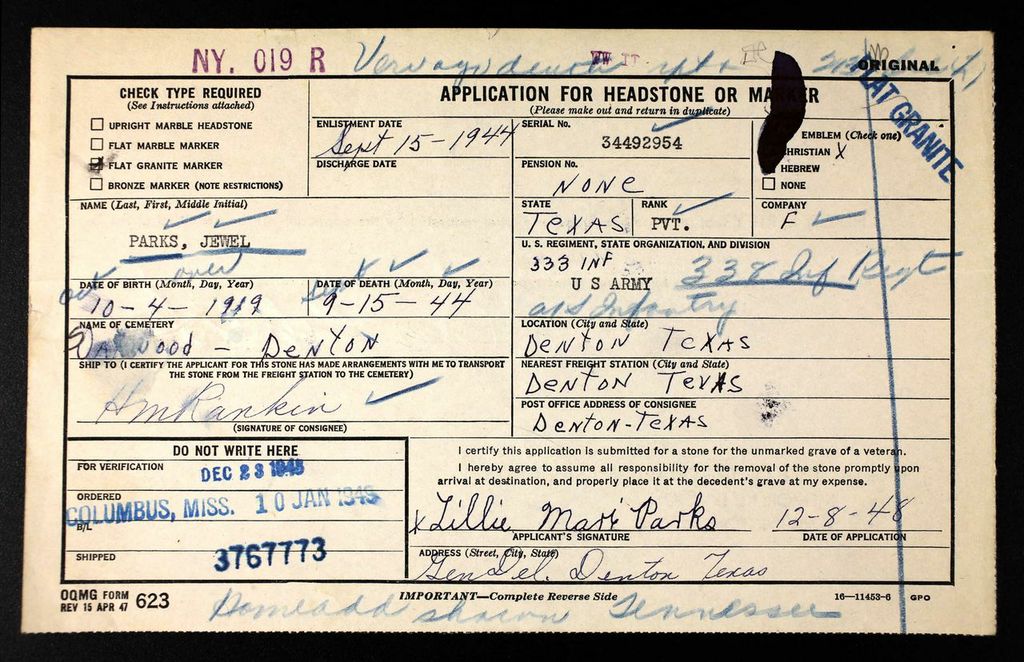 NY. 019 R
WW II
ORIGINAL
FLAT GRANITE
CHECK TYPE REQUIRED
(See Instructions attached)
UPRIGHT MARBLE HEADSTONE
FLAT MARBLE MARKER
FLAT GRANITE MARKER
BRONZE MARKER (NOTE RESTRICTIONS)
APPLICATION FOR HEADSTONE OR MARKER
(Please make out and return in duplicate)
ENLISTMENT DATE
Sept 15-1944
DISCHARGE DATE
SERIAL No.
34492954
PENSION No.
NONE
EMBLEM (Check one)
CHRISTIAN X
HEBREW
NONE
NAME (Last, First, Middle Initial)
PARKS, JEWEL
STATE
TEXAS
RANK
PVT.
COMPANY
F
U. S. REGIMENT, STATE ORGANIZATION, AND DIVISION
333 INF
U S ARMY
338 Inf Regt
Infantry
over
DATE OF BIRTH (Month, Day, Year)
10-4-1919
DATE OF DEATH (Month, Day, Year)
9-15-44
NAME OF CEMETERY
Oakwood - Denton
LOCATION (City and State)
Denton Texas
SHIP TO (I CERTIFY THE APPLICANT FOR THIS STONE HAS MADE ARRANGEMENTS WITH ME TO TRANSPORT
THE STONE FROM THE FREIGHT STATION TO THE CEMETERY)
HmRankin
(SIGNATURE OF CONSIGNEE)
NEAREST FREIGHT STATION (City and State)
Denton Texas
POST OFFICE ADDRESS OF CONSIGNEE
Denton-Texas
DO NOT WRITE HERE
FOR VERIFICATION
DEC 23 1948
ORDERED
COLUMBUS, MISS. 10 JAN 1949
B/L
SHIPPED
3767773
I certify this application is submitted for a stone for the unmarked grave of a veteran.
I hereby agree to assume all responsibility for the removal of the stone promptly upon
arrival at destination, and properly place it at the decedent's grave at my expense.
x Lillie Mari Parks
APPLICANT'S SIGNATURE
12-8-48
DATE OF APPLICATION
ADDRESS (Street, City, State)
Gen Del. Denton Texas
OQMG FORM
REV 15 APR 47 623
IMPORTANT—Complete Reverse Side
16—11453-6 GPO
Home add shown Tennessee